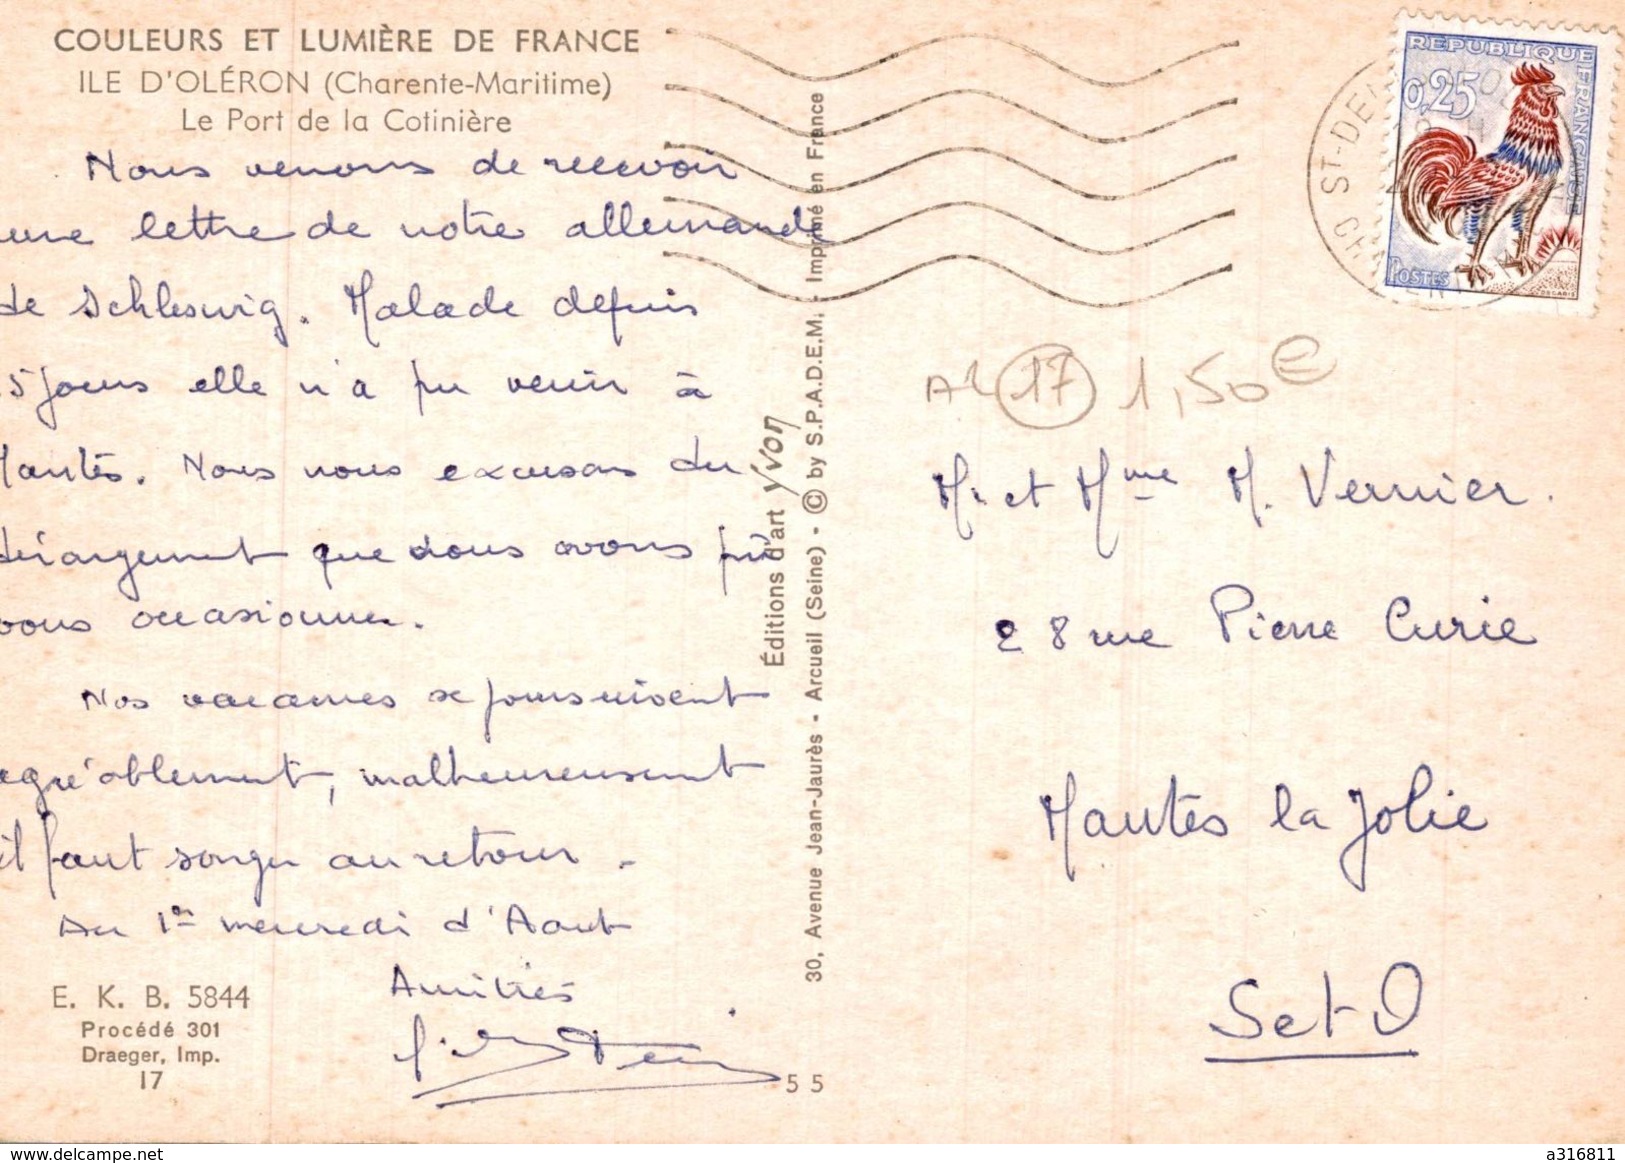 COULEURS ET LUMIÈRE DE FRANCE
ILE D'OLÉRON (Charente-Maritime)
Le Port de la Cotinière
Nous venons de recevoir
une lettre de notre allemande
de Schleswig. Malade depuis
5 jours elle n'a pu venir à
Mantes. Nous nous excusons du
dérangement que nous avons pu
vous occasionner.
Nos vacances se poursuivent
agréablement, malheureusement
il faut songer au retour.
Au 1er mercredi d'Aout
Amitiés
E. K. B. 5844
Procédé 301
Draeger, Imp.
17
55
Éditions d'art Yvon
30, Avenue Jean-Jaurès - Arcueil (Seine) - © by S.P.A.D.E.M. - Imprimé en France
REPUBLIQUE FRANÇAISE
0,25
POSTES
DECARIS
ST-DE
17 1,50€
Mr et Mme M. Vernier.
28 rue Pierre Curie
Mantes la Jolie
Set-O
delcampe.net
a316811